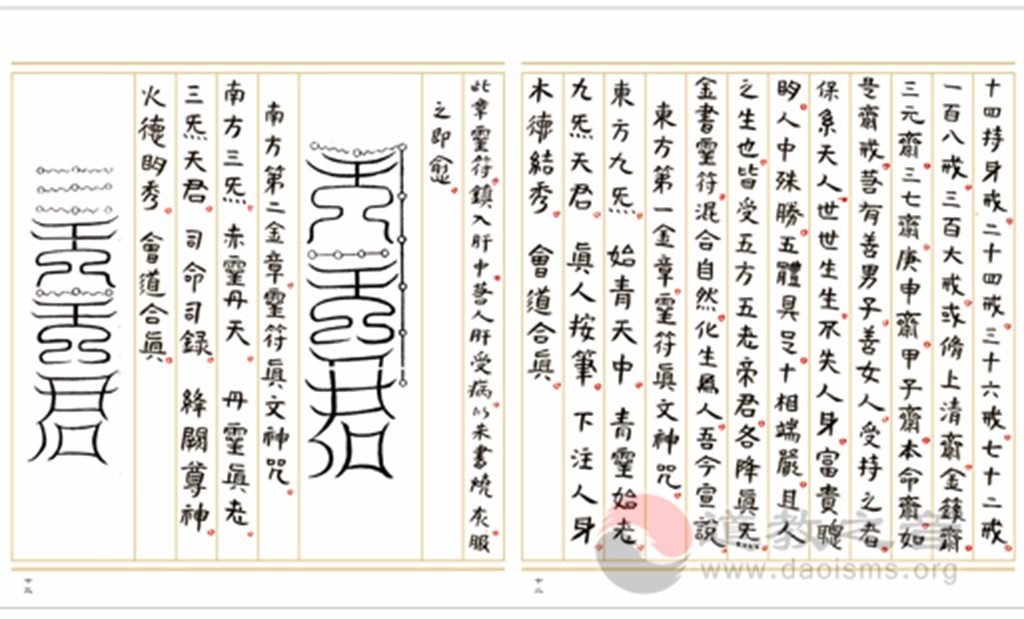 十四持身戒二十四戒三十六戒七十二戒
一百八戒三百大戒或脩上清齋金籙齋
三元齋三七齋庚申齋甲子齋本命齋如
是齋戒若有善男子善女人受持之者
保系天人世世生生不失人身富貴聰
明人中殊勝五體具足十相端嚴且人
之生也皆受五方五老帝君各降眞炁
金書靈符混合自然化生爲人吾今宣說
東方第一金章靈符眞文神咒
東方九炁 始青天中 青靈始老
九炁天君 眞人按筆 下注人身
木德結秀 會道合眞
十二
此章靈符鎮入肝中若人肝受病以朱書燒灰服
之即愈
南方第二金章靈符眞文神咒
南方三炁 赤靈丹天 丹靈眞老
三炁天君 司命司錄 絳闕尊神
火德明秀 會道合眞
十三
道教之音
www.daoisms.org